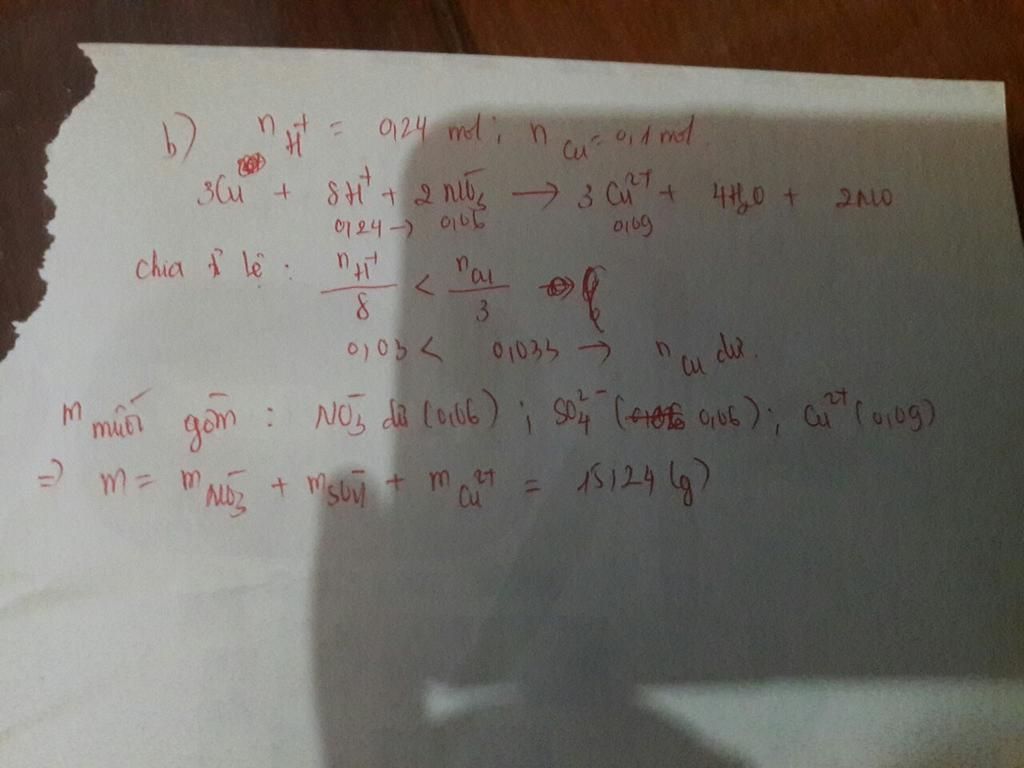 b) n H⁺ = 0,24 mol ; n Cu = 0,1 mol.
3Cu + 8H⁺ + 2NO₃⁻ → 3Cu²⁺ + 4H₂O + 2NO
0,24 → 0,06 0,09
chia tỉ lệ : n H⁺ / 8 < n Cu / 3
0,03 < 0,033 → n Cu dư.
m muối gồm : NO₃⁻ dư (0,06) ; SO₄²⁻ (0,06) ; Cu²⁺ (0,09)
=> m = m NO₃⁻ + m SO₄²⁻ + m Cu²⁺ = 15,24 (g)